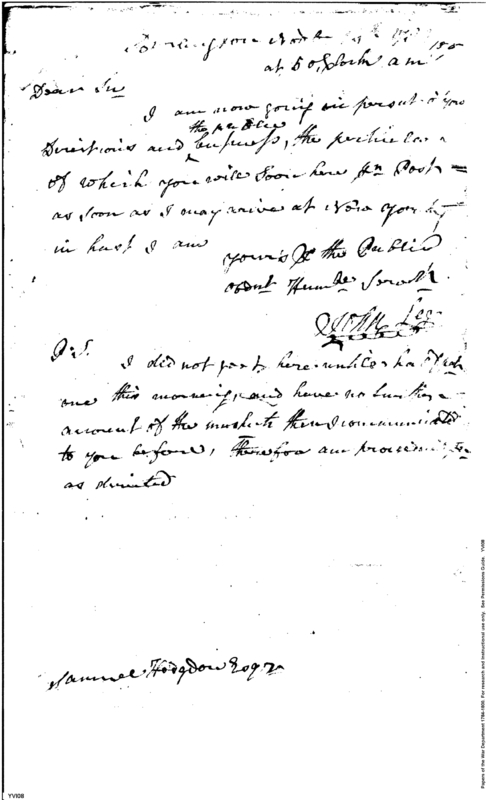 at 5 oClock am
Dear Sir
I am now going in persut of your
the publice
Directions and business, the perticulars
of which you will Soon here pr Post
as soon as I may arive at New York
in hast I am
yours & the Public
obent Humble Servt
John
P.S. I did not here untill half past
one this morning, and have no further
account of the muskets then I communicated
to you before, therefore am proceeding
as directed
Samuel Hodgdon Esqr
Papers of the War Department 1784-1800. For research and instructional use only. See Permissions Guide. YVI08
YVI08